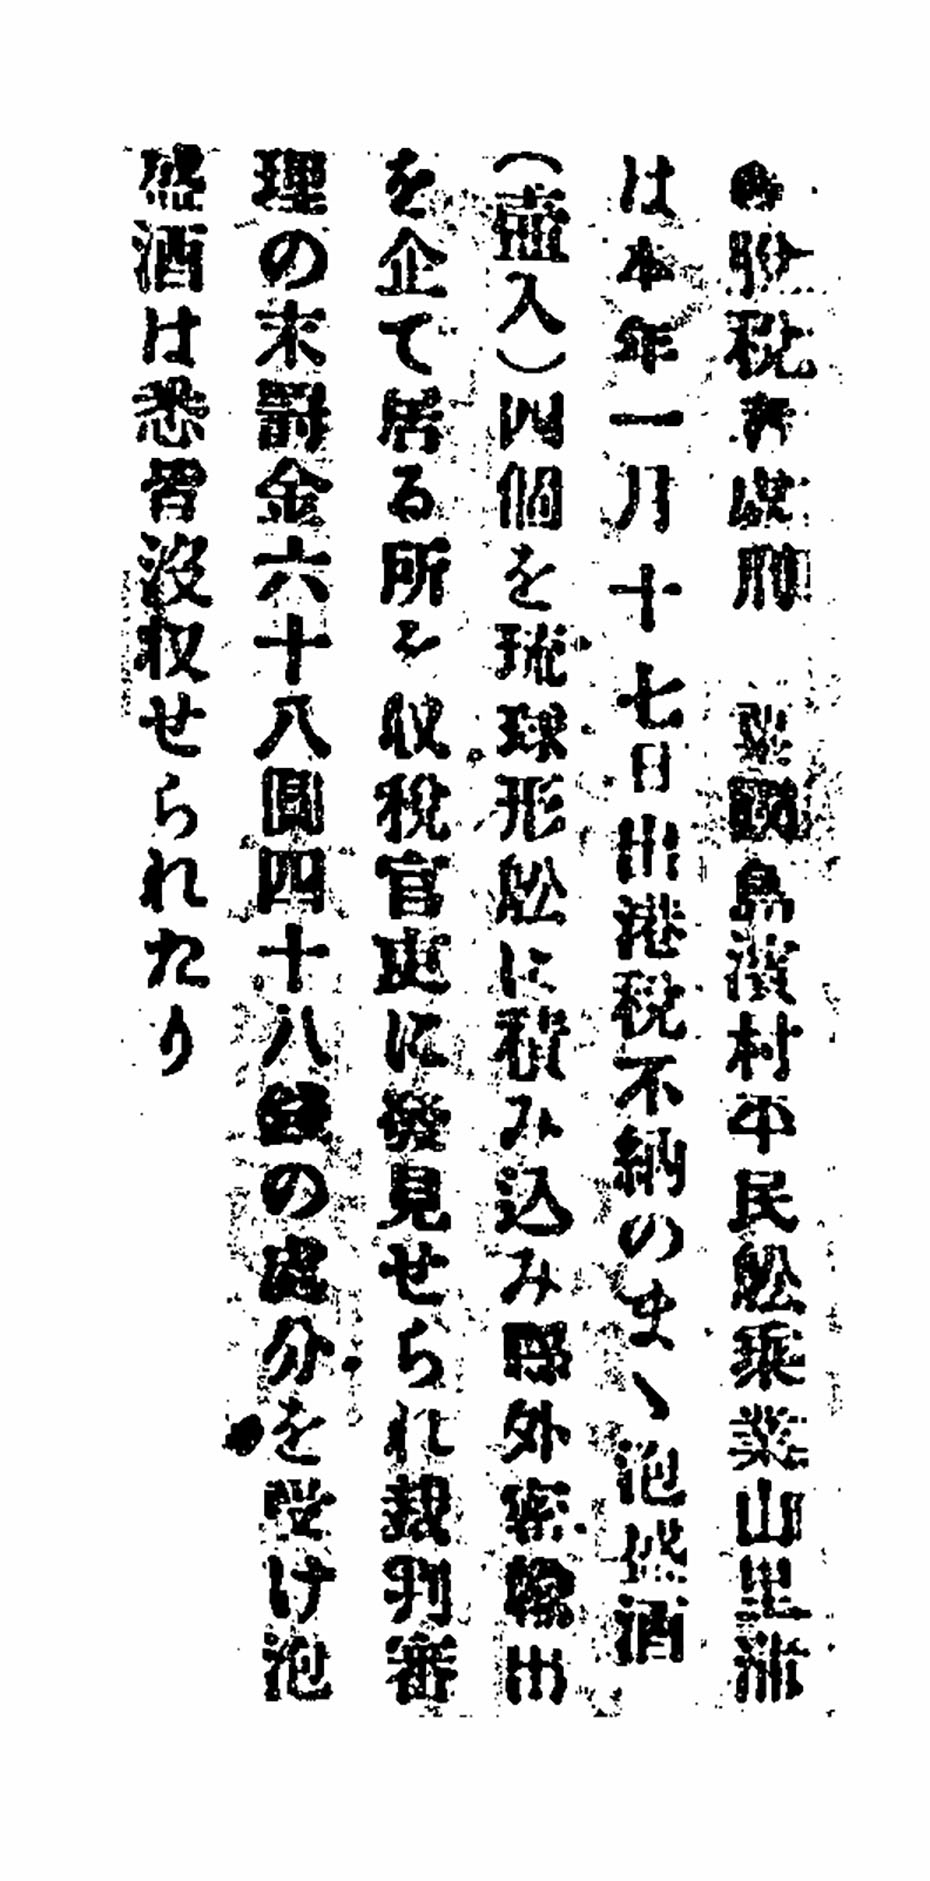 ●脱税者處刑　粟國島濱村平民舩乘業山里蒲
は本年一月十七日出港税不納のまゝ泡盛酒
（壷入）四個を琉球形舩に積み込み縣外密輸出
を企て居る所を収税官吏に發見せられ裁判審
理の末罰金六十八圓四十八錢の處分を受け泡
盛酒は悉皆没収せられたり